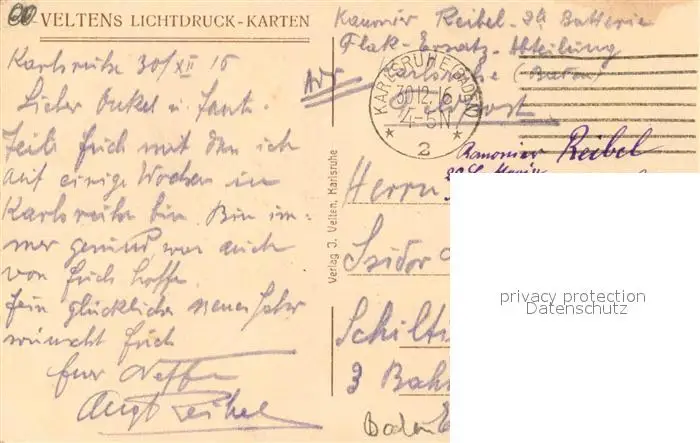 VELTENS LICHTDRUCK-KARTEN
Karlsruhe 30/XII 16
Lieber Onkel u. Tante.
Teile Euch mit daß ich
auf einige Wochen in
Karlsruhe bin. Bin im-
mer gesund, was auch
von Euch hoffe.
Ein glückliches neues Jahr
wünscht Euch
Euer Neffe
Aug. Reibel
Verlag J. Velten, Karlsruhe
Kanonier Reibel. Batterie
Flak-Ersatz-Abteilung
Karlsruhe (Baden)
KARLSRUHE (BADEN)
30.12.16
4-5N
2
Kanonier Reibel
Herrn
Isidor
Schilti
3 Bah
Baden
privacy protection
Datenschutz